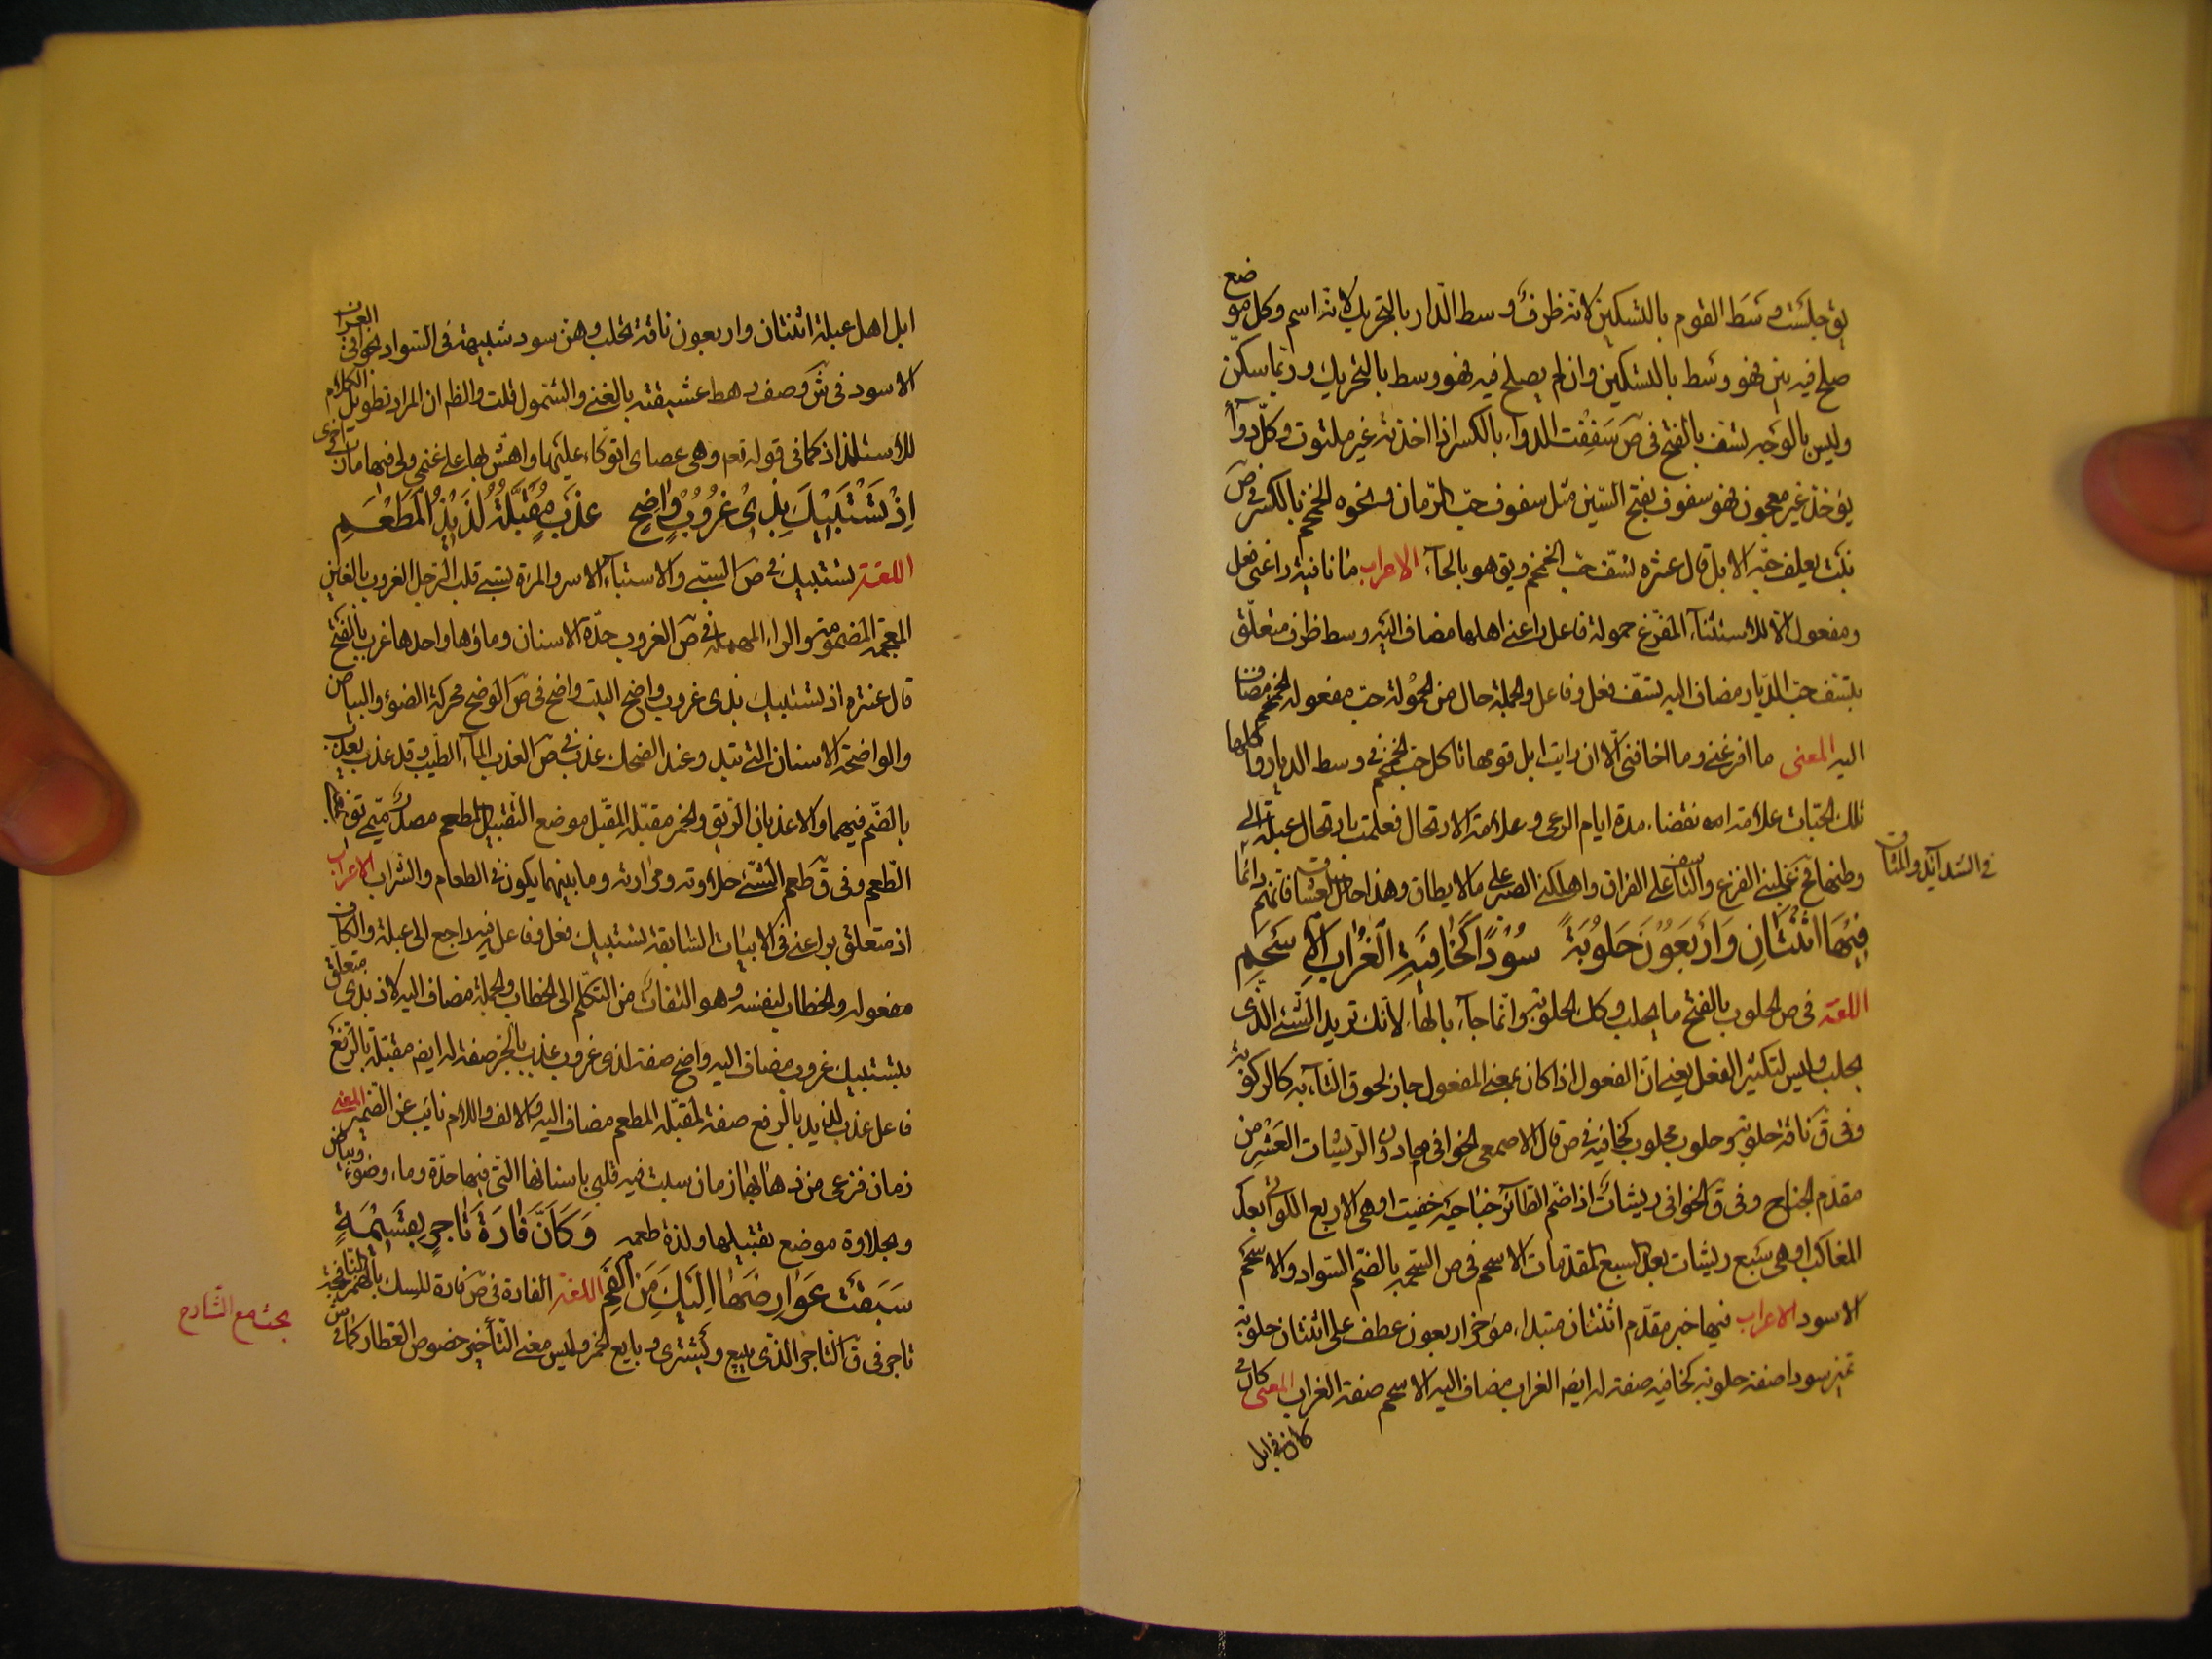 يق جلست وسَط القوم بالتسكين لانّه ظرف و وسط الدّار بالتحريك لانّه اسم وكل موضع
صلح فيه بين فهو وسْط بالتسكين وان لم يصلح فيه فهو وسط بالتحريك وربّما سكّن
وليس بالوجه تسف بالفتح في صَ سَفِفْت الدواء بالكسر اذا اخذته غير ملتوت وكلّ دواء
يؤخذ غير معجون فهو سفوف بفتح السّين مثل سفوف حبّ الرّمان ونحوه الخمخم بالكسر في صَ
نبت يعلف حبّه الابل قال عنتره تسفّ حبّ الخمخم ويق هو بالحاء الاعراب ما نافية راعني فعل
ومفعول الّا للاستثناء المفرّغ حمولة فاعل راعني اهلها مضاف اليه وسط ظرف متعلّق
بتسف الدّيار مضاف اليه تسف فعل وفاعل والجملة حال من الحمولة حبّ مفعوله الخمخم مضاف
اليه المعنى ما افزعني وما اخافني الّا ان رايت ابل قومها تاكل حبّ الخمخم في وسط الديار وكانها
تلك الحبات علامة انقضاء مدة ايام الرعى وعلامة الارتحال فعلمت بارتحال عبلة الى
وطنها فح غلبني الفزع والتاسف على الفراق واهلكني الصبر على ما لا يطاق وهذا حال العشاق انهم دائما
في الشدايد والمشاق
فِيْهَا اثْنَتَانِ وَاَرْبَعُوْنَ حَلُوْبَةً سُوْدًا كَخَافِيَةِ الْغُرَابِ الْاَسْحَمِ
اللغة في ص الحلوب بالفتح ما يحلب وكك الحلوبة وانّما جاء بالهاء لانّك تريد الشئ الّذى
يحلب وليس لتكثير الفعل يعني انّ الفعول اذا كان بمعنى المفعول جاز لحوق التاء به كالركوبة
وفي ق ناقة حلوبة وحلوب محلوب كخافية في ص قال الاصمعي الخوافي ما دون الرّيشات العَشر من
مقدّم الجناح وفي ق الخوافي ريشات اذا ضم الطّائر جناحيه خفيت او هي الاربع اللواتي بعد
المناكب او هي سَبع ريشات بعد السبع المقدّمات الاسحم في ص السّحمة بالضم السّواد والاسحم
الاسود الاعراب فيها خبر مقدّم اثنتان مبتداء مؤخر اربعون عطف على اثنتان حلوبة
تميز سودا صفة حلوبة كخافية صفة له ايضه الغراب مضاف اليه الاسحم صفة الغراب المعنى كان في
كان في ابل
ابل اهل عبلة اثنتان واربعون ناقة تحلب وهنّ سود شبيهة في السّواد بخوافي الغراب
الاسود في ش وصف رهط عشيقته بالغنى والتمول قلت والظ ان المراد تطويل الكلام
للاستلذاذ كما في قوله تعم وهي عصاى اتوكّاء عليها واهشّ بها على غنمي ولى فيها مآرب اخرى
اِذْ تَسْتَبِيْكَ بِذِىْ غُرُوْبٍ وَاضِحٍ عَذْبٍ مُقَبَّلُهُ لَذِيْذِ الْمَطْعَمِ
اللغة تستبيك في صَ السّبى والاستباء الاسر والمرة تسبى قلب الرّجل الغروب بالغين
المعجمة المضمومة والراء المهملة في صَ الغروب حدّة الاسنان وماؤها واحدها غرب بالفتح
قال عنتره اذ تستبيك بذى غروب واضح البيت واضح في صَ الوضح محركة الضوء والبياض
والواضحة الاسنان التي تبدو عند الضحك عذب في صَ العذب الماء الطيّب وقد عذب يعذب
بالضّم فيهما والاعذبان الرّيق والخمر مقبّله المقبّل موضع التقبيل المطعم مصدر ميمي
الطّعم وفي قَ طعم الشئ حلاوته ومرارته وما بينهما يكون في الطعام والشراب الاعراب
اذ متعلق براعني في الابيات السّابقة تستبيك فعل وفاعل فيه راجع الى عبلة والكاف
مفعوله والخطاب لنفسه وهو التفات من التكلّم الى الخطاب والجملة مضاف اليه لاذ بذى متعلق
بتستبيك غروب مضاف اليه واضح صفة لذى غروب عذب بالجرّ صفة له ايضه مقبّله بالرّفع
فاعل عذب لذيذ بالرفع صفة لمقبّله المطعم مضاف اليه والالف واللام نايب عن الضّمير المعنى
زمان فزعى من ذهابها زمان سلبت فيه قلبي باسنانها الّتي فيها حدّة وماء وضوء وبياض
وبحلاوة موضع تقبيلها ولذة طعمه وَكَاَنَّ فَارَةَ تَاجِرٍ بِقَسِيْمَةٍ
سَبَقَتْ عَوَارِضَهَا اِلَيْكَ مِنَ الْفَمِ اللغة الفارة في صَ فارة المسك بالهمز النافجة
تاجر في قَ التّاجر الّذى يبيع ويشترى وبايع الخمر وليس معنى التّاجر خصوص العطار كما في ش
بحث مع الشّارح